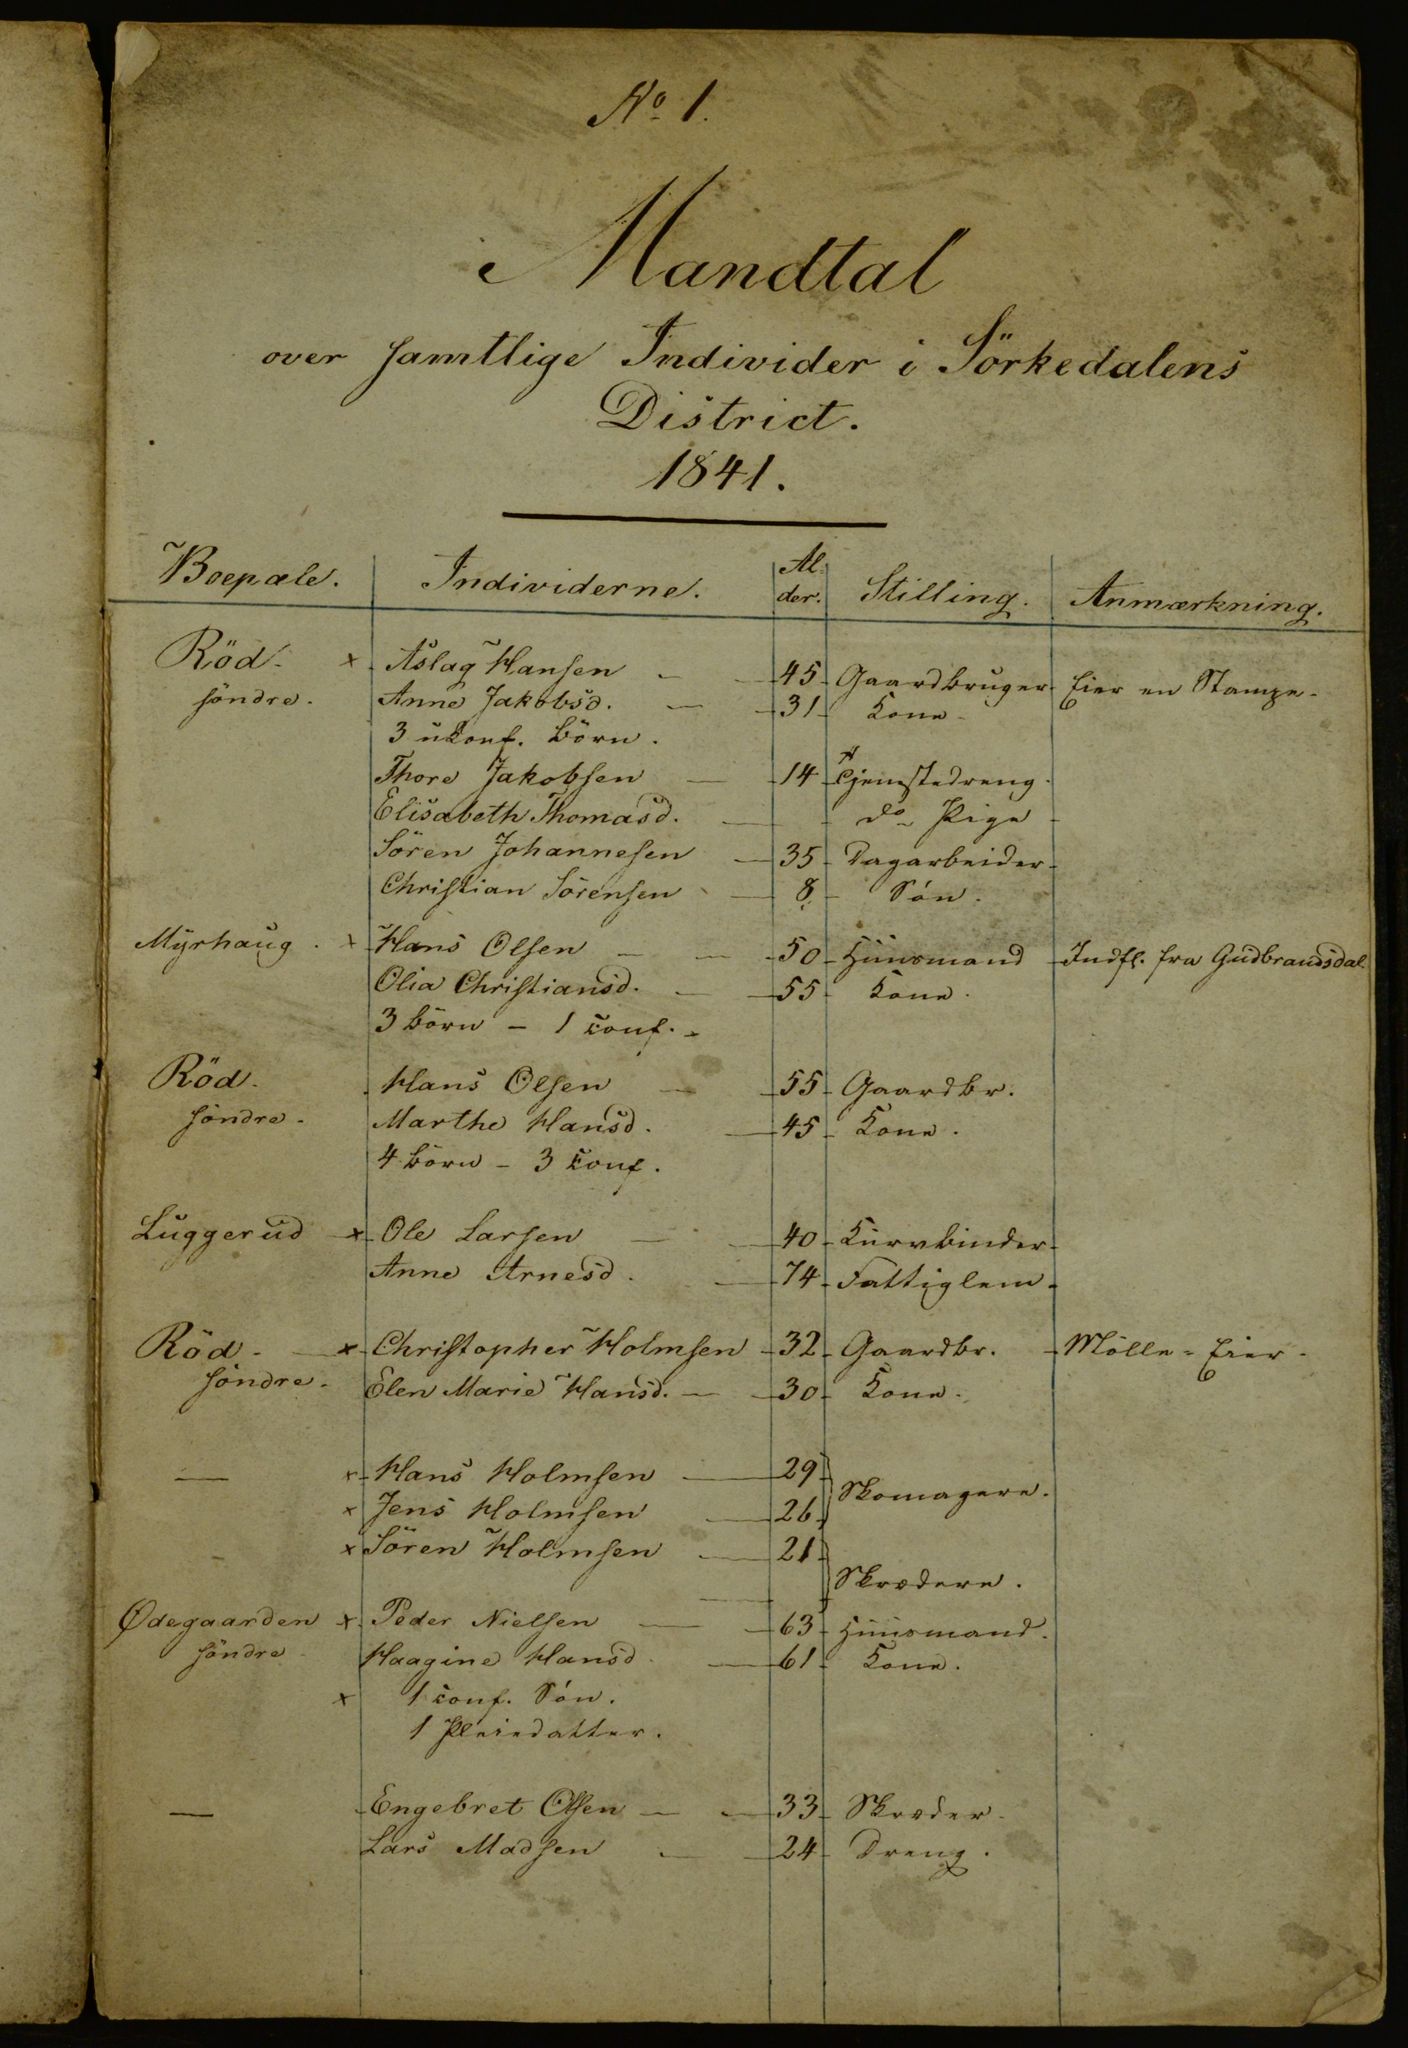 No 1.
Mandtal
over samtlige Individer i Sörkedalens
District.
1841.
Boepæle. Individerne. Al- der. Stilling. Anmærkning.
Röd - × Aslag Hansen - 45 - Gaardbruger. Eier en Stampe -
söndre. Anne Jakobsd. - 31 - Kone -
3 ukonf. Börn.
Thore Jakobsen - 14 - Tjenstedreng.
Elisabeth Thomasd. - do Pige -
Sören Johannesen - 35 - Dagarbeider -
Christian Sörensen - 8 - Sön.
Myrhaug. × Hans Olsen - 50 - Huusmand - Indfl. fra Gudbrandsdal.
Olia Christiansd. - 55 - Kone.
3 Börn - 1 conf. -
Röd - Hans Olsen - 55 - Gaardbr.
söndre - Marthe Hansd. - 45 - Kone.
4 Börn - 3 Conf.
Luggerud × Ole Larsen - 40 - Kurvbinder -
Anne Arnesd. - 74 - Fattiglem -
Röd - × Christopher Holmsen - 32 - Gaardbr. - Mölle-Eier -
söndre - Elen Marie Hansd. - 30 - Kone -
— × Hans Holmsen - 29 -
Skomagere.
× Jens Holmsen - 26 -
× Sören Holmsen - 21 -
Skrædere.
Ødegaarden × Peder Nielsen - 63 - Huusmand.
söndre - Haagine Hansd. - 61 - Kone.
× 1 conf. Sön.
1 Pleiedatter.
— Engebret Olsen - 33 - Skræder -
Lars Madsen - 24 - Dreng.